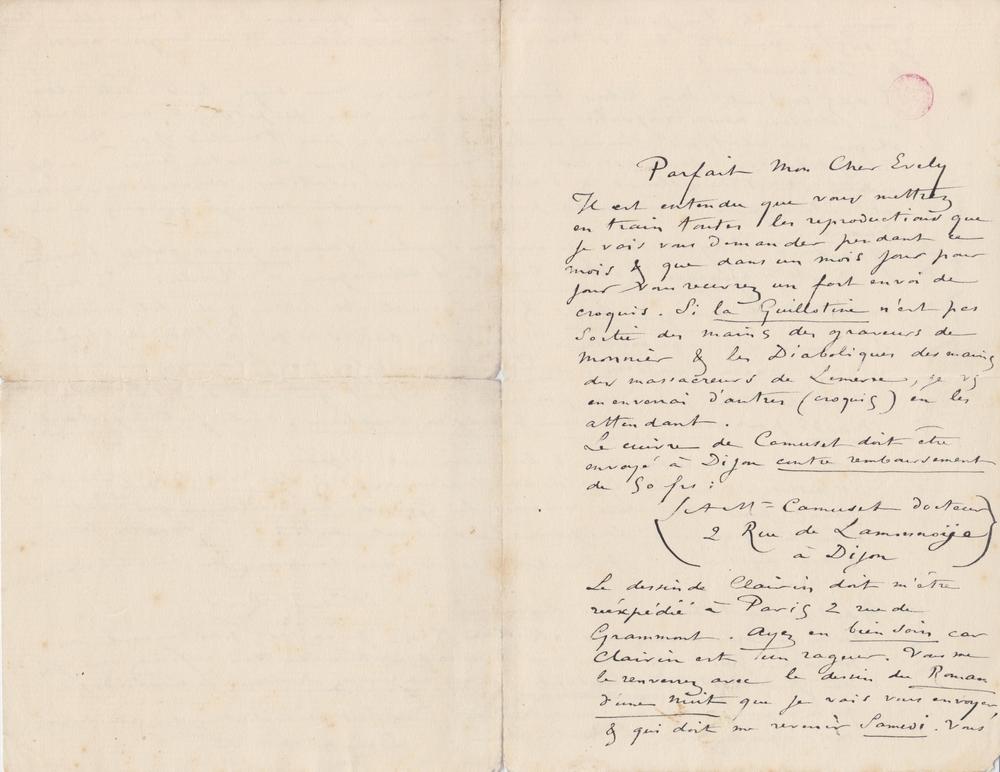 Parfait Mon Cher Evely
Il est entendu que vous mettrez
en train toutes les reproductions que
je vais vous demander pendant ce
mois & que dans un mois jour pour
jour vous recevrez un fort envoi de
croquis. Si la Guillotine n'est pas
sortie des mains des graveurs de
Monnier & les Diaboliques des mains
des massacreurs de Lemerre, je
en enverrai d'autres (croquis) en les
attendant.
Le cuivre de Camuset doit être
envoyé à Dijon contre remboursement
de 50 frs :
(A Mr Camuset docteur
2 Rue de Lammonoije
à Dijon)
Le dessin de Clairin doit m'être
réexpédié à Paris 2 rue de
Grammont. Ayez en bien soin car
Clairin est un rageur. Vous me
le renverrez avec le dessin du Roman
d'une nuit que je vais vous envoyer,
& qui doit me revenir Samedi. Vous